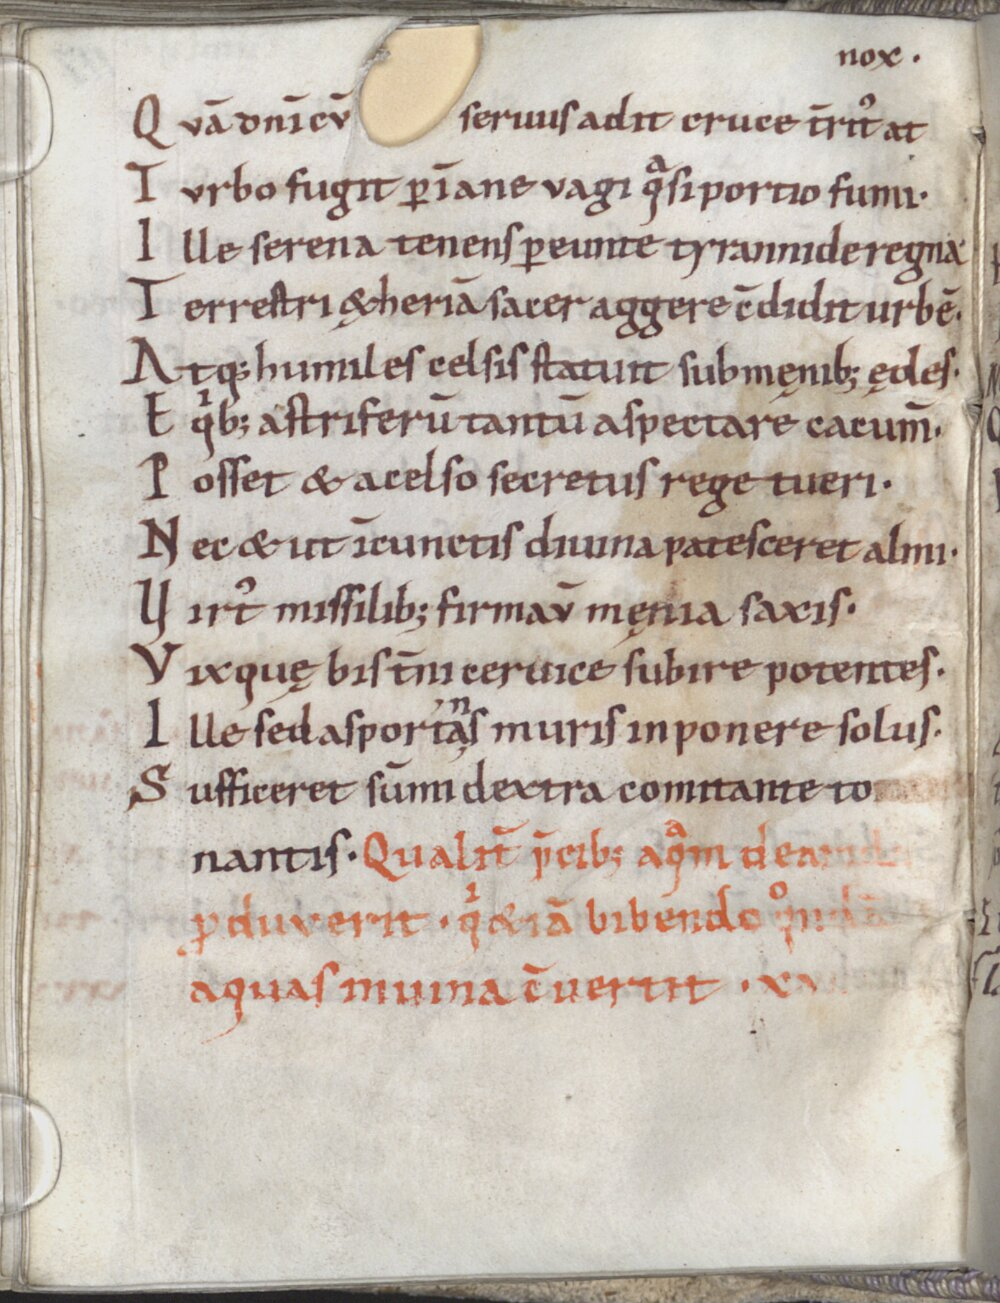 nox.
Quā dnīcū seruus adit cruce t̄rit᷒ at
Turbo fugit ꝑ īane vagi qͣsi portio fumi.
Ille serena tenens ꝑeunte tyrannide regna
Terrestri ęth&heriā sacer aggere c̄didit urbē.
Atq; humiles celsis statuit sub męnib; ędes.
E qͥb; astriferū tantū aspectare cacum̄.
Posset & a celso secretus rege tueri.
Nec & ut īcunctis diuina patesceret almi.
Uirt᷒ missilib; firmaū męnia saxis.
Vix quę bis t̄ni ceruice subire potentes.
Ille sed asportans muris inponere solus.
Sufficeret sūmi dextra comitante to
nantis. Qualit̄ p̄cib; aqͣm de
ꝑduxerit. qͥ &iā bibendo
aquas in uina c̄uertit.